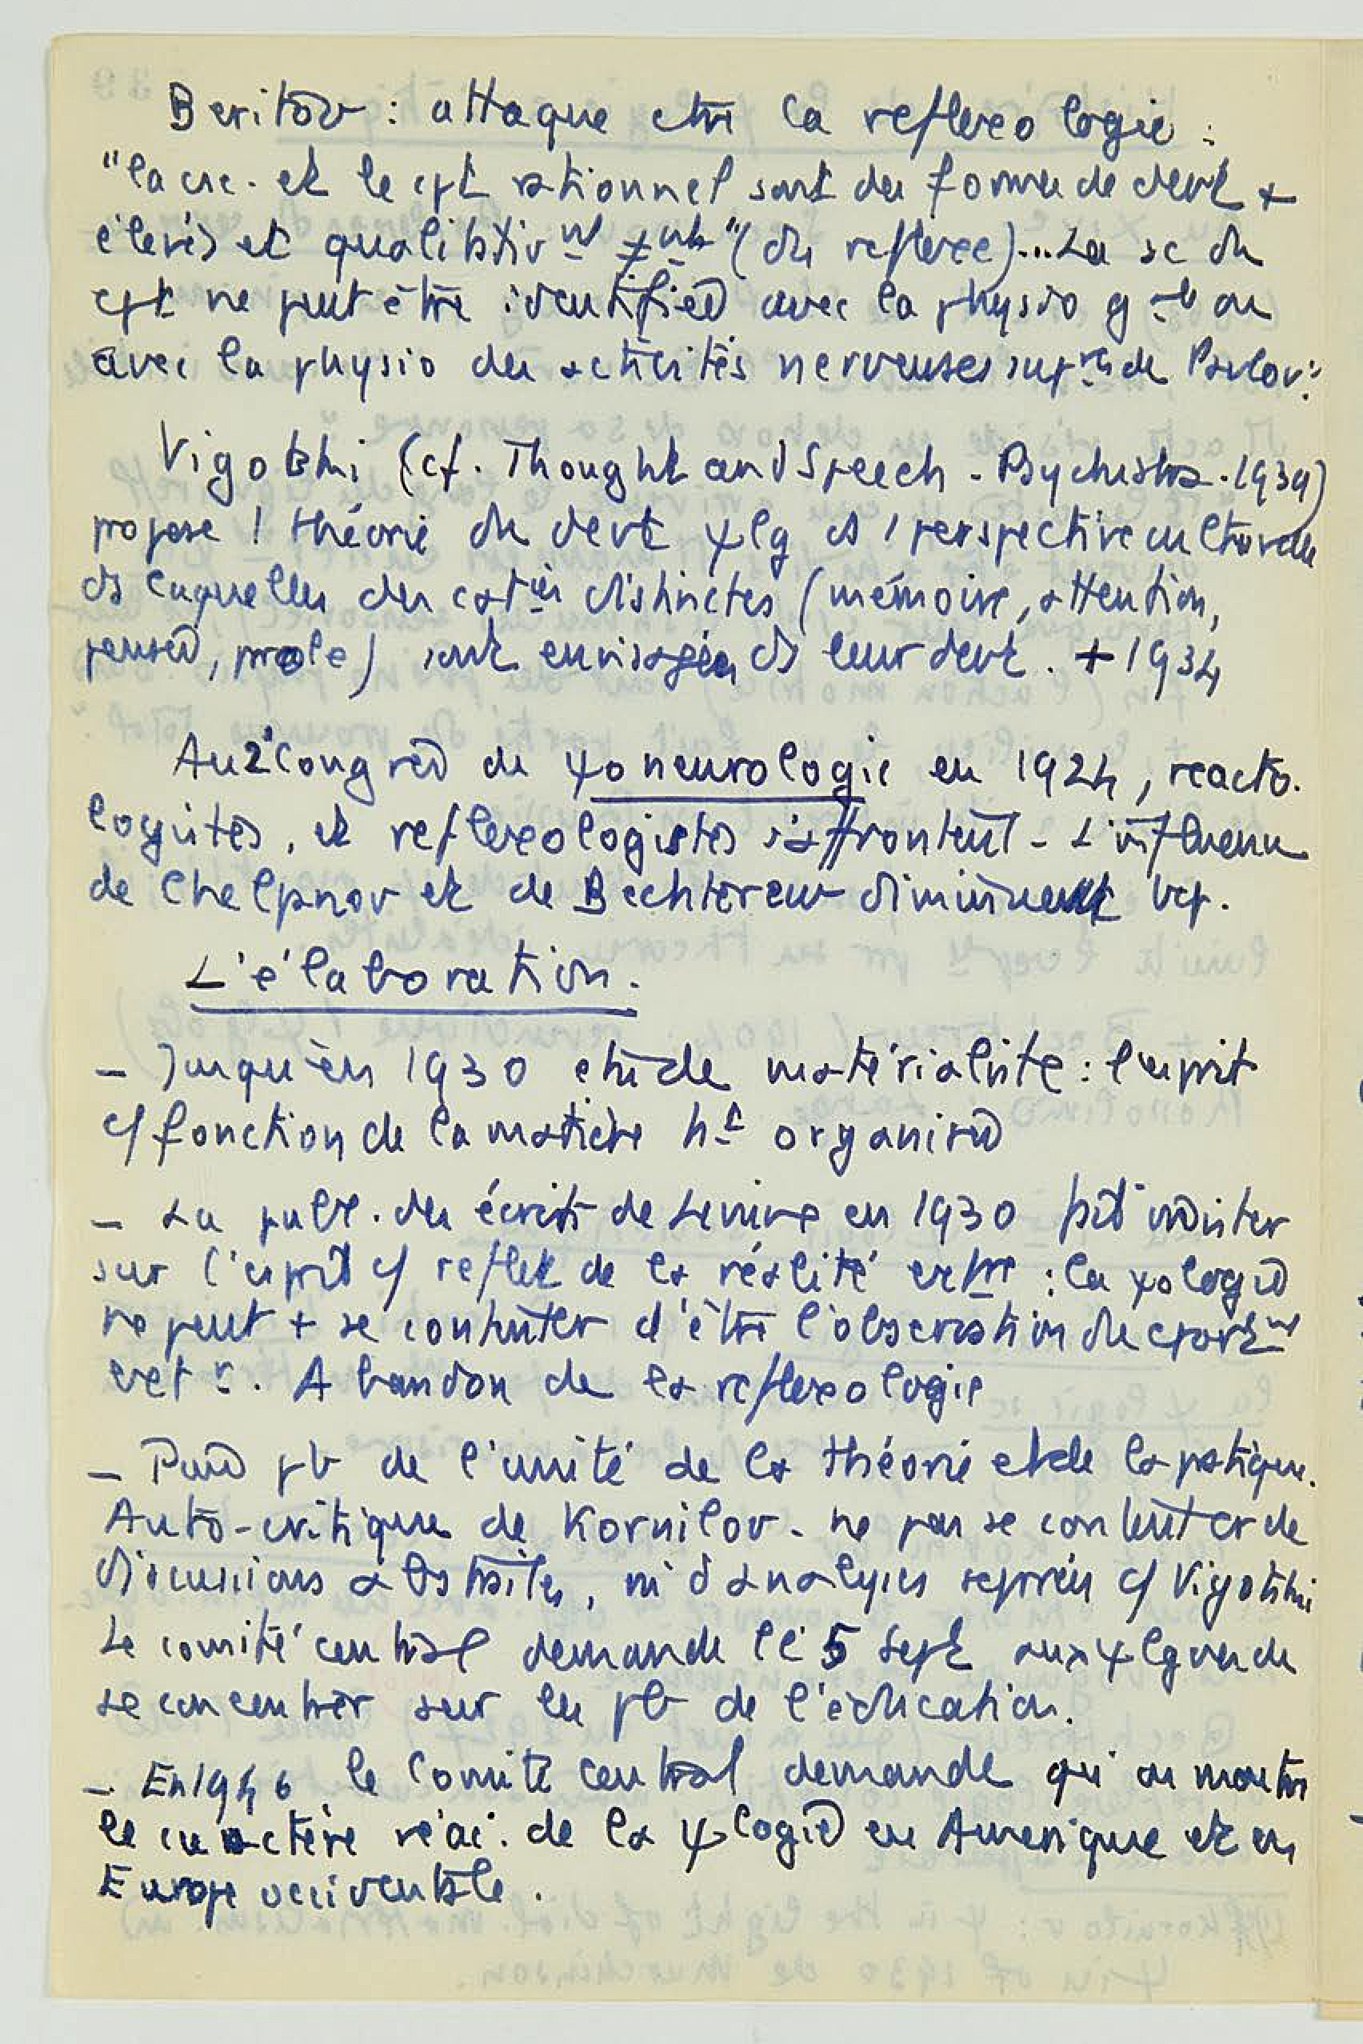 Beritov : attaque ctre la reflexologie :
"la csc. et le cpt rationnel sont des formes de devt +
élevés et qualitativnt ≠nts" (du reflexe)... La sc du
cpt ne peut être identifiée avec la physio gale ou
avec la physio des activités nerveuses supres de Pavlov".
Vigotski (cf. Thought and Speech - Psychiatrs. 1939)
propose 1 théorie du devt ψlg ds 1 perspective culturelle
ds laquelle des caties distinctes (mémoire, attention,
pensée, parole) sont envisagées ds leur devt. + 1934
Au 2e Congrès de ψoneurologie en 1924, reacto-
logistes, et reflexologistes s'affrontent - L'influence
de Chelpanov et de Bechterew diminuent bcp.
L'élaboration.
- Jusqu'en 1930 étude matérialiste : l'esprit
c/ fonction de la matière ht organisée
- La publ. des écrits de Lenine en 1930 fait insister
sur l'esprit c/ reflet de la réalité extre : la ψologie
ne peut + se contenter d'être l'observation du cportnt
extr. Abandon de la reflexologie
- Puis pb de l'unité de la théorie et de la pratique.
Auto-critique de Kornilov - ne pas se contenter de
discussions abstraites, ni d'analyses séparées c/ Vigotski
Le comité central demande le 5 Sept aux ψlgues de
se concentrer sur les pb de l'éducation.
- En 1946 le Comité central demande qu'on montre
le caractère réac. de la ψologie en Amerique et en
Europe occidentale.